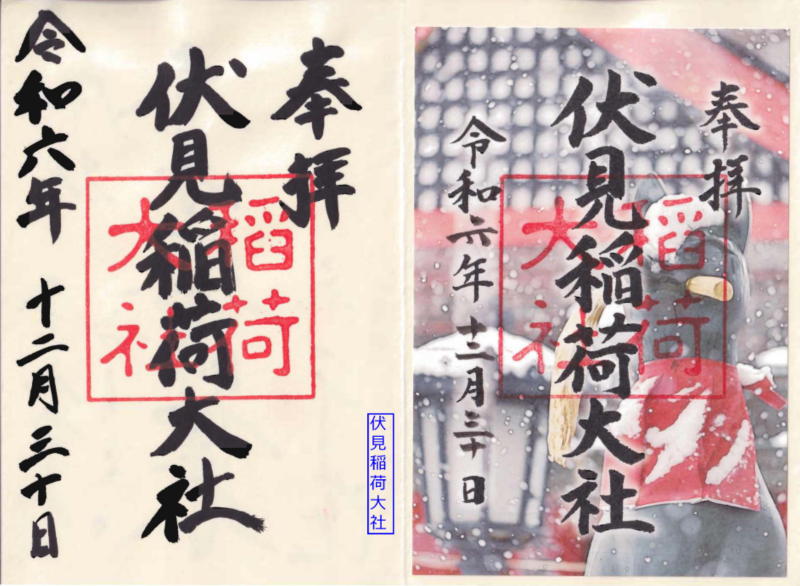 奉拝
伏見稲荷大社
稲荷
大社
令和六年 十二月三十日
伏見稲荷大社
奉拝
伏見稲荷大社
稲荷
大社
令和六年十二月三十日